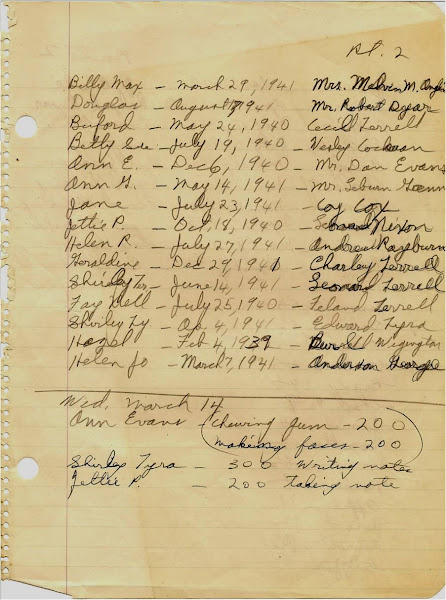 pt. 2
Billy Max – March 29, 1941 Mrs. Melvin M.
Douglas – August 1941 Mr. Robert Dyar
Buford – May 24, 1940 Cecil Terrell
Betty Sue – July 19, 1940 – Wesley
Ann E. – Dec 6, 1940 – Mr. Dan Evans
Ann G. – May 14, 1941 – Mr.
Jane – July 23, 1941 – Coy Cox
Jettie P. – Oct, 19, 1940 – Nixon
Helen R. – July 27, 1941 – Andrew Rayburn
Geraldine – Dec 29, 1941 – Charley Terrell
Shirley – June 14, 1941 – Leonard Terrell
Fay Nell – July 25, 1940 – Leland Terrell
Shirley Ty – 4, 1941 – Edward Tyra
Hazel – Feb 4, 1939 – Burell Wigington
Helen Jo – March 7, 1941 – Anderson George
Wed. March 14
Ann Evans – chewing gum – 200
making faces – 200
Shirley Tyra – 300 writing notes
Jettie P. – 200 taking note